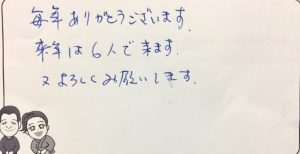 毎年ありがとうございます.
来年は6人で来ます.
又よろしくお願いします.